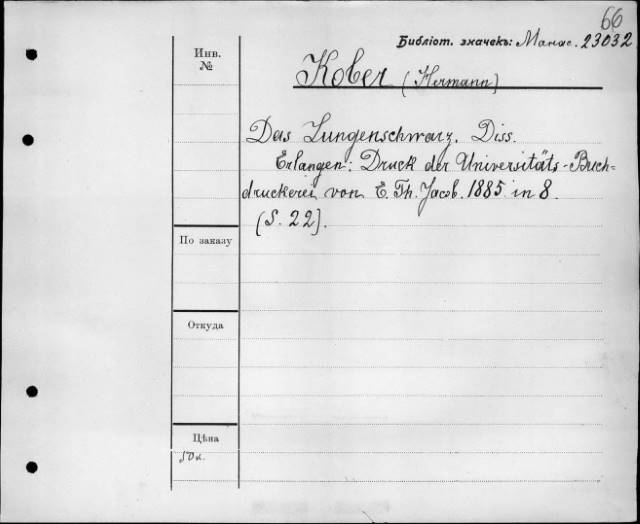 66
Библіот. значекъ: Манас. 23032
Инв.
№
Kober (Hermann)
Das Lungenschwarz. Diss.
Erlangen: Druck der Universitäts-Buch-
druckerei von E. Th. Jacob. 1885. in 8.
(S. 22).
По заказу
Откуда
Цѣна
50к.